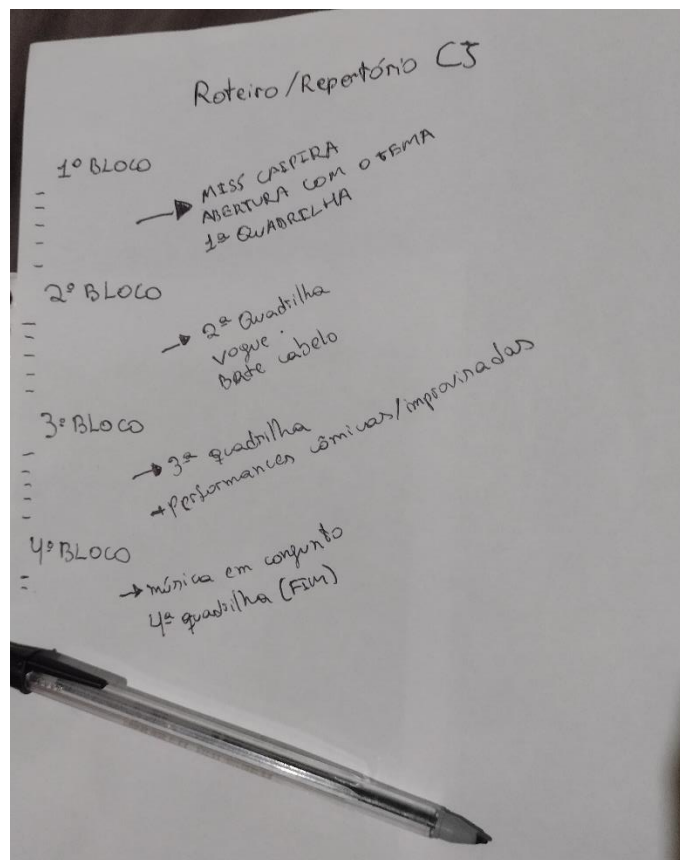 Roteiro/Repertório CJ
1º BLOCO
MISS CAIPIRA
ABERTURA COM O TEMA
1ª QUADRILHA
2º BLOCO
2ª Quadrilha
Vogue.
Bate cabelo
3º BLOCO
3ª quadrilha
Performances cômicas/improvisadas
4º BLOCO
música em conjunto
4ª quadrilha (FIM)